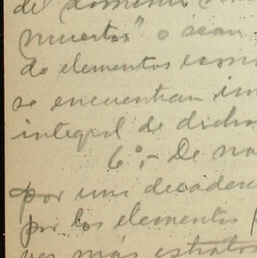 del dominio
muertos" o sean
de elementos
se encuentran
integral de dicho
6º,- De
por uni decaden
por los elementos
mas estratos